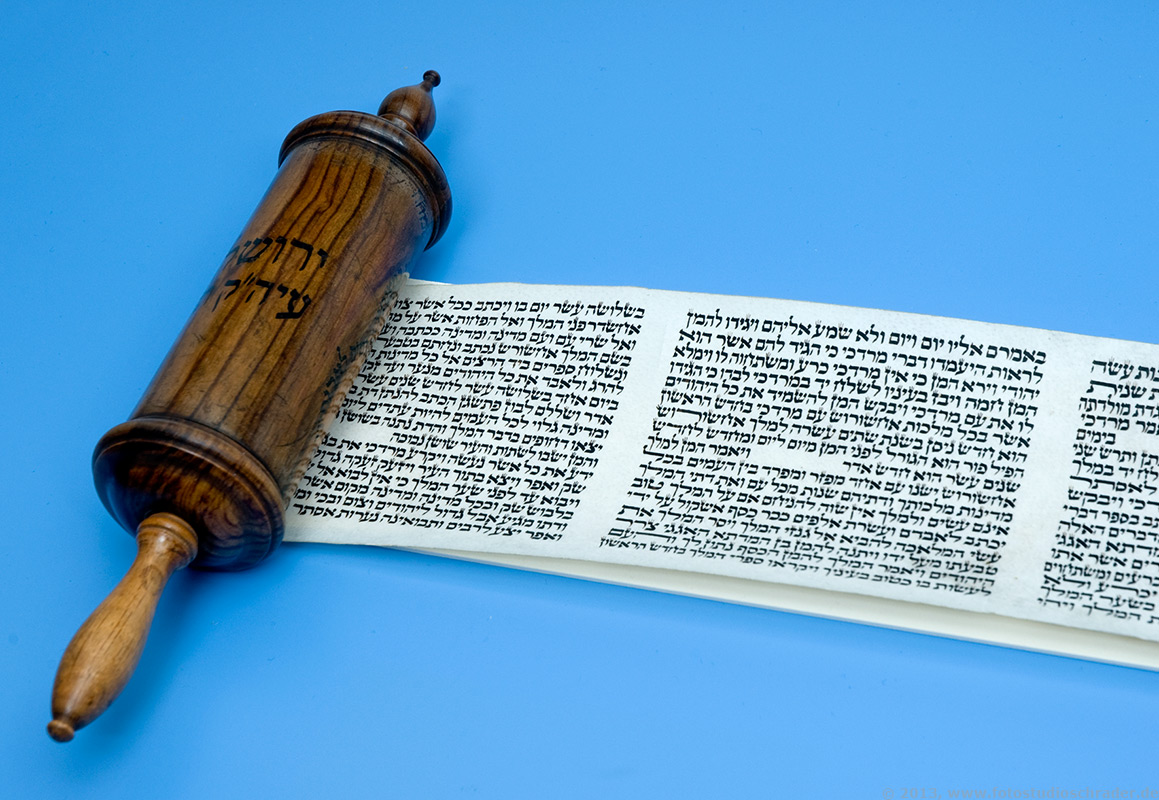 ירושל
עיה"ק
עשה
שנית
מולדתה
מרדכי
בימים
ותרש שני
יד במלך
לאסתר
ויבקש
בספר דברי
כאמרם אליו יום ויום ולא שמע אליהם ויגידו להמן
לראות היעמדו דברי מרדכי כי הגיד להם אשר הוא
יהודי וירא המן כי אין מרדכי כרע ומשתחוה לו וימלא
המן חמה ויבז בעיניו לשלח יד במרדכי לבדו כי הגידו
לו את עם מרדכי ויבקש המן להשמיד את כל היהודים
אשר בכל מלכות אחשורוש עם מרדכי בחדש הראשון
הוא חדש ניסן בשנת שתים עשרה למלך אחשורוש
הפיל פור הוא הגורל לפני המן מיום ליום ומחדש לחדש
שנים עשר הוא חדש אדר ויאמר המן למלך
אחשורוש ישנו עם אחד מפזר ומפרד בין העמים בכל
מדינות מלכותך ודתיהם שנות מכל עם ואת דתי המלך
אינם עשים ולמלך אין שוה להניחם אם על המלך טוב
יכתב לאבדם ועשרת אלפים ככר כסף אשקול על ידי
עשי המלאכה להביא אל גנזי המלך ויסר המלך את
טבעתו מעל ידו ויתנה להמן בן המדתא האגגי צרר
היהודים ויאמר המלך להמן הכסף נתון לך והעם
לעשות בו כטוב בעיניך ויקראו ספרי המלך בחדש הראשון
בשלושה עשר יום בו ויכתב ככל אשר צוה
אחשדרפני המלך ואל הפחות אשר על
ואל שרי עם ועם מדינה ומדינה ככתבה
בשם המלך אחשורש נכתב ונחתם
ונשלוח ספרים ביד הרצים אל כל מדינות
להרג ולאבד את כל היהודים מנער ועד זקן
ביום אחד בשלושה עשר לחדש שנים עשר
אדר ושללם לבוז פתשגן הכתב להנתן דת
ומדינה גלוי לכל העמים להיות עתידים ליום
יצאו דחופים בדבר המלך והדת נתנה בשושן
והמן ישבו לשתות והעיר שושן נבוכה
ידע את כל אשר נעשה ויקרע מרדכי את
שק ואפר ויצא בתוך העיר ויזעק זעקה גדלה
ויבוא עד לפני שער המלך כי אין לבוא אל
בלבוש שק ובכל מדינה ומדינה מקום אשר
ודתו מגיע אבל גדול ליהודים וצום ובכי
ואפר יצע לרבים ותבואינה נערות אסתר